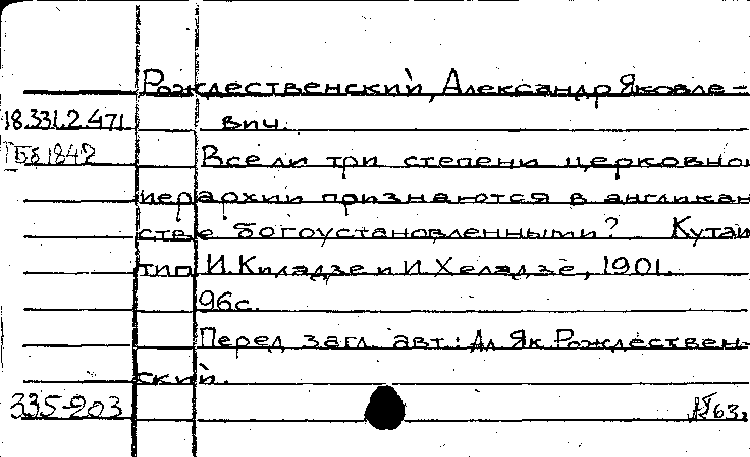 Рождественский, Александр Яковле-
18.331.2.471 вич.
ГБб 1842 Все ли три степени церковно
иерархии признаются в англикан
стве богоустановленными? Кутаи
тип И. Киладзе и И. Хеладзе, 1901.
96с.
Перед загл. авт.: Ал Як. Рождествен-
ский.
335-203 63.